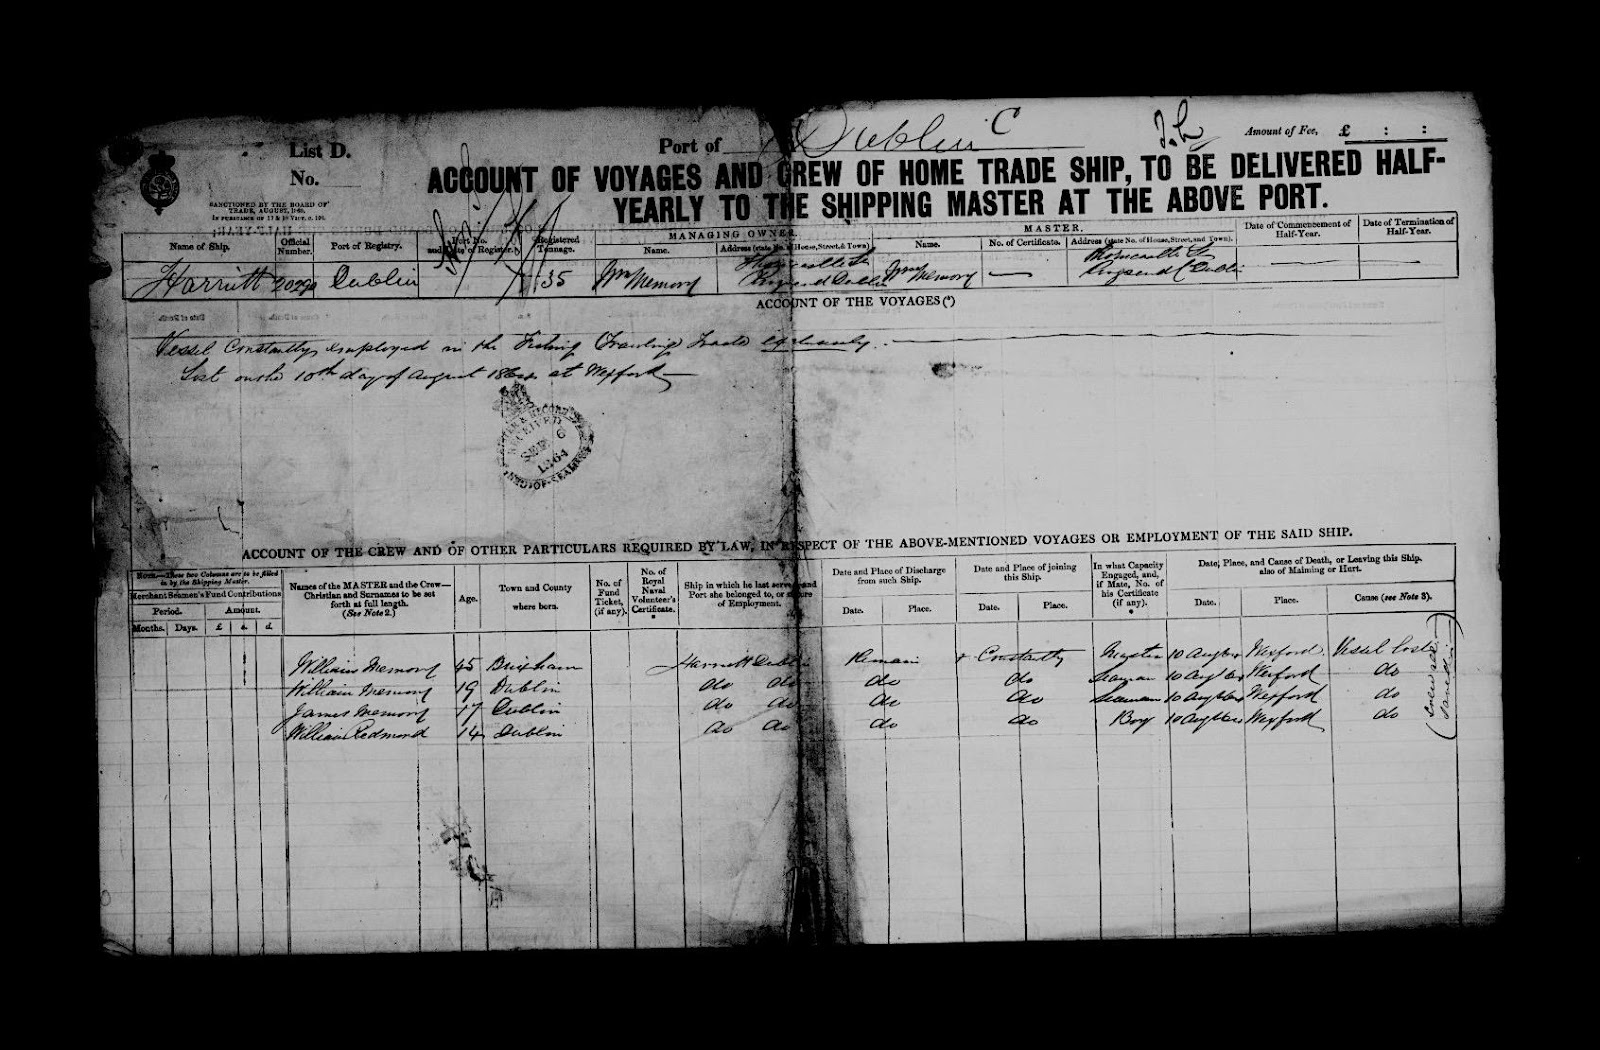 List D.
No.
Port of Dublin C
Amount of Fee, £ : :
SANCTIONED BY THE BOARD OF
TRADE, AUGUST,
IN PURSUANCE OF 17 & 18 VICT. c. 104.
ACCOUNT OF VOYAGES AND CREW OF HOME TRADE SHIP, TO BE DELIVERED HALF-
YEARLY TO THE SHIPPING MASTER AT THE ABOVE PORT.
Name of Ship. Official Number. Port of Registry. Port No. and Date of Register. Registered Tonnage. MANAGING OWNER. Name. Address (state No. of House, Street, & Town) MASTER. Name. No. of Certificate. Address (state No. of House, Street, and Town). Date of Commencement of Half-Year. Date of Termination of Half-Year.
Harriett Dublin 35 Wm Memory Thorncastle St Ringsend Dublin Wm Memory — Thorncastle St Ringsend Dublin — —
ACCOUNT OF THE VOYAGES (*)
Vessel Constantly employed in the Fishing Trawling Trade exclusively.
Lost on the 10th day of August 1864 at Wexford
RECEIVED
SEP 6
1864
ACCOUNT OF THE CREW AND OF OTHER PARTICULARS REQUIRED BY LAW, IN RESPECT OF THE ABOVE-MENTIONED VOYAGES OR EMPLOYMENT OF THE SAID SHIP.
NOTE.—These two Columns are to be filled in by the Shipping Master.
Merchant Seamen's Fund Contributions
Period. Amount.
Months. Days. £ s. d.
Names of the MASTER and the Crew—Christian and Surnames to be set forth at full length. (See Note 2.)
Age.
Town and County where born.
No. of Fund Ticket, (if any).
No. of Royal Naval Volunteer's Certificate. *
Ship in which he last served and Port she belonged to, or nature of Employment.
Date and Place of Discharge from such Ship. Date. Place.
Date and Place of joining this Ship. Date. Place.
In what Capacity Engaged, and, if Mate, No. of his Certificate (if any). *
Date, Place, and Cause of Death, or Leaving this Ship. also of Maiming or Hurt. Date. Place. Cause (see Note 3).
William Memory 45 Brixham Harriett Dublin Remain + Constantly Master 10 Augt 64 Wexford Vessel lost
William Memory 19 Dublin do do do do Seaman 10 Augt 64 Wexford do
James Memory 17 Dublin do do do do Seaman 10 Augt 64 Wexford do
William Redmond 14 Dublin do do do do Boy 10 Augt 64 Wexford do
(Crew all saved)